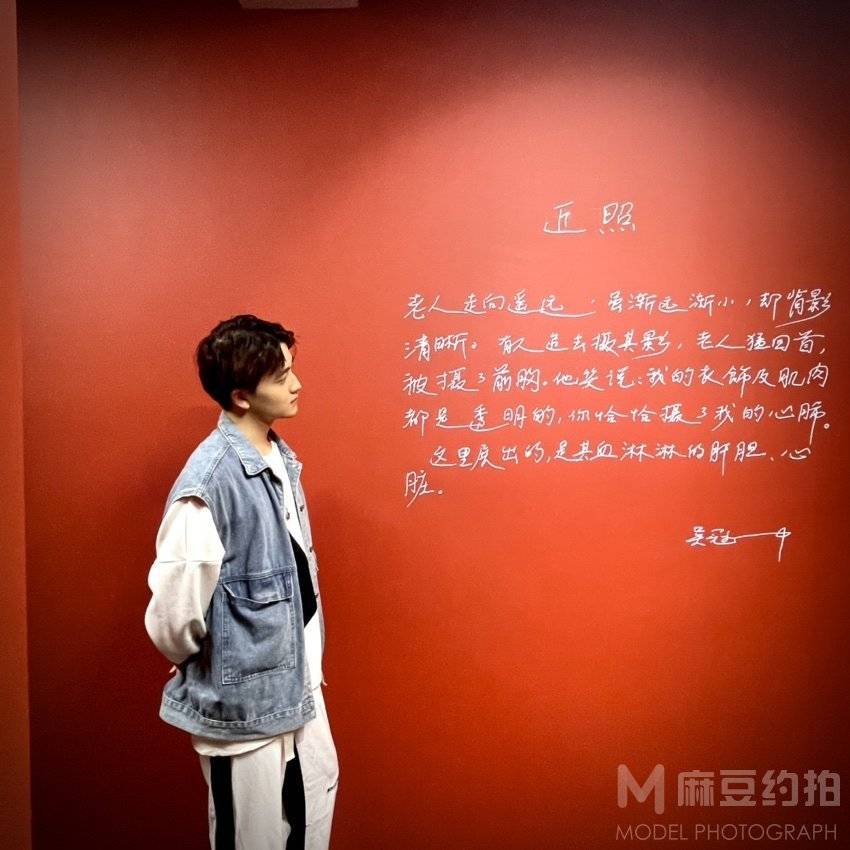 近照
老人走向遥远，虽渐远渐小，却背影
清晰。有人追去摄其影，老人猛回首，
被摄了前胸。他笑说：我的衣饰及肌肉
都是透明的，你恰恰摄了我的心肺。
这里展出的，是其血淋淋的肝胆、心
脏。
吴冠中
M 麻豆约拍
MODEL PHOTOGRAPH